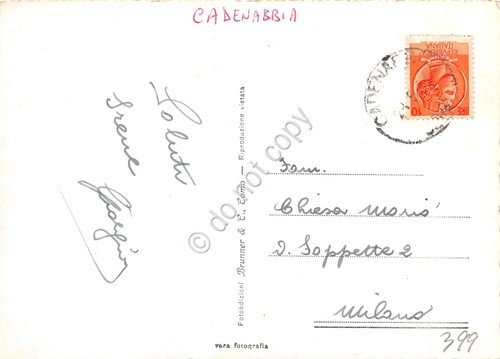 CADENABBIA
Saluti
Irene
Giorgio
Fotoedizioni Brunner & C., Como — Riproduzione vietata
do not copy
CADENABBIA
Fam.
Chiesa Mario
V. Soppette 2
Milano
vera fotografia
399